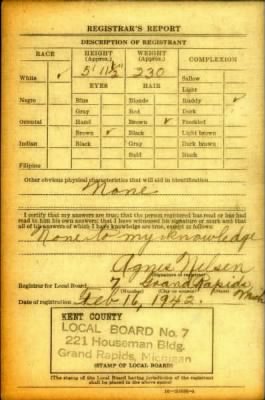 REGISTRAR'S REPORT
DESCRIPTION OF REGISTRANT
RACE HEIGHT (Approx.) WEIGHT (Approx.) COMPLEXION
White ✓ 5' 11½" 230 Sallow
EYES HAIR Light
Negro Blue Blonde Ruddy ✓
Gray Red Dark
Oriental Hazel Brown ✓ Freckled
Brown ✓ Black Light brown
Indian Black Gray Dark brown
Bald Black
Filipino
Other obvious physical characteristics that will aid in identification
None
I certify that my answers are true; that the person registered has read or has had
read to him his own answers; that I have witnessed his signature or mark and that
all of his answers of which I have knowledge are true, except as follows:
None to my knowledge
Agnes Nelsen
Registrar for Local Board 7 Grand Rapids Mich
(Number) (City or county) (State)
Date of registration Feb 16, 1942.
KENT COUNTY
LOCAL BOARD No. 7
221 Houseman Bldg.
Grand Rapids, Michigan
(STAMP OF LOCAL BOARD)
(The stamp of the Local Board having jurisdiction of the registrant
shall be placed in the above space)